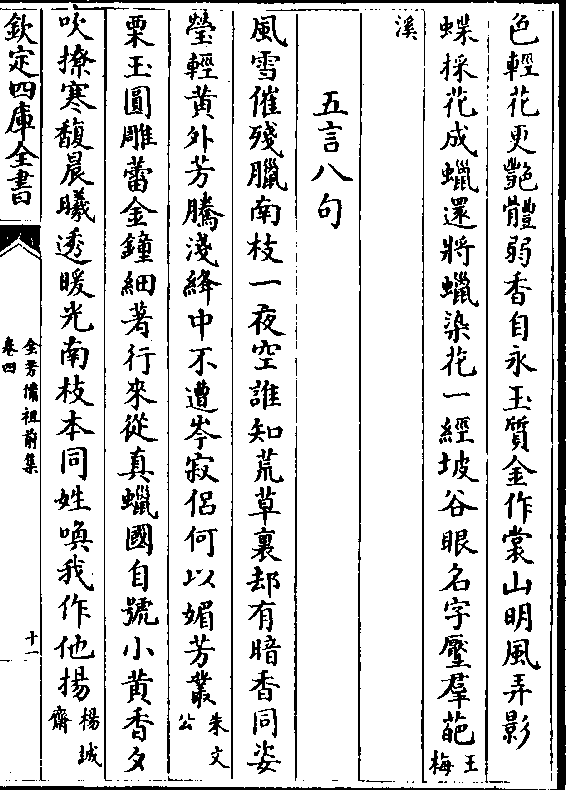 色輕花更艶體弱香自永玉質金作裳山明風弄影
蝶採花成蠟還將蠟染花一經坡谷眼名字壓羣葩王梅
溪
五言八句
風雪催殘臘南枝一夜空誰知荒草裏却有暗香同姿
瑩輕黄外芳騰淺絳中不遭岑寂侣何以媚芳叢朱文公
栗玉圓雕蕾金鐘細著行來從真蠟國自號小黄香夕
吹撩寒馥晨曦透暖光南枝本同姓喚我作他揚楊誠齋
欽定四庫全書
全芳備祖前集
卷四
十一